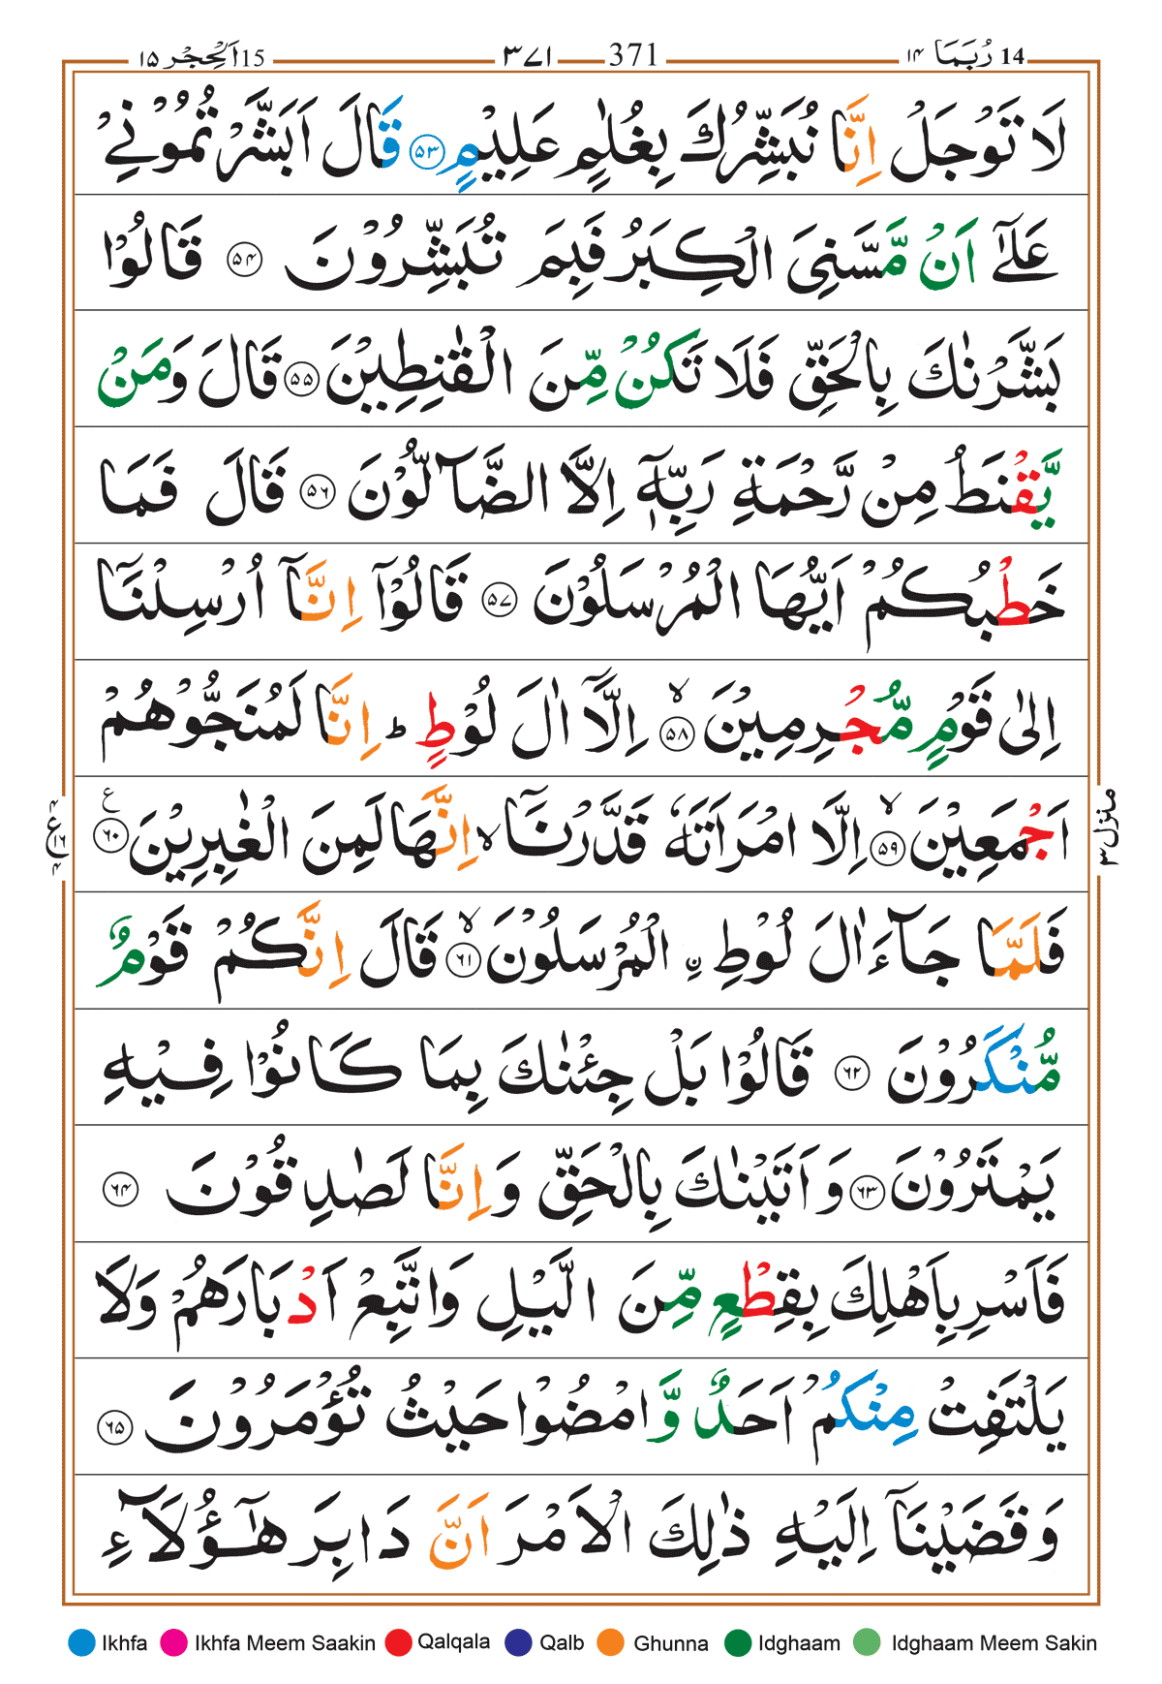 اَلْحِجْر ۱۵ 15 ۳۷۱ 371 رُبَمَا ۱۴ 14
لَا تَوْجَلْ اِنَّا نُبَشِّرُكَ بِغُلٰمٍ عَلِيْمٍ ۵۳ قَالَ اَبَشَّرْتُمُوْنِيْ
عَلٰٓى اَنْ مَّسَّنِيَ الْكِبَرُ فَبِمَ تُبَشِّرُوْنَ ۵۴ قَالُوْا
بَشَّرْنٰكَ بِالْحَقِّ فَلَا تَكُنْ مِّنَ الْقٰنِطِيْنَ ۵۵ قَالَ وَمَنْ
يَّقْنَطُ مِنْ رَّحْمَةِ رَبِّهٖٓ اِلَّا الضَّآلُّوْنَ ۵۶ قَالَ فَمَا
خَطْبُكُمْ اَيُّهَا الْمُرْسَلُوْنَ ۵۷ قَالُوْٓا اِنَّآ اُرْسِلْنَآ
اِلٰى قَوْمٍ مُّجْرِمِيْنَ ۙ ۵۸ اِلَّآ اٰلَ لُوْطٍ ؕ اِنَّا لَمُنَجُّوْهُمْ
اَجْمَعِيْنَ ۙ ۵۹ اِلَّا امْرَاَتَهٗ قَدَّرْنَآ ۙ اِنَّهَا لَمِنَ الْغٰبِرِيْنَ ۶۰ ع
منزل ۳
ع ۴ ۱۶ ۴
فَلَمَّا جَآءَ اٰلَ لُوْطِ ۨ الْمُرْسَلُوْنَ ۙ ۶۱ قَالَ اِنَّكُمْ قَوْمٌ
مُّنْكَرُوْنَ ۶۲ قَالُوْا بَلْ جِئْنٰكَ بِمَا كَانُوْا فِيْهِ
يَمْتَرُوْنَ ۶۳ وَاَتَيْنٰكَ بِالْحَقِّ وَاِنَّا لَصٰدِقُوْنَ ۶۴
فَاَسْرِ بِاَهْلِكَ بِقِطْعٍ مِّنَ الَّيْلِ وَاتَّبِعْ اَدْبَارَهُمْ وَلَا
يَلْتَفِتْ مِنْكُمْ اَحَدٌ وَّامْضُوْا حَيْثُ تُؤْمَرُوْنَ ۶۵
وَقَضَيْنَآ اِلَيْهِ ذٰلِكَ الْاَمْرَ اَنَّ دَابِرَ هٰٓؤُلَآءِ
Ikhfa Ikhfa Meem Saakin Qalqala Qalb Ghunna Idghaam Idghaam Meem Sakin